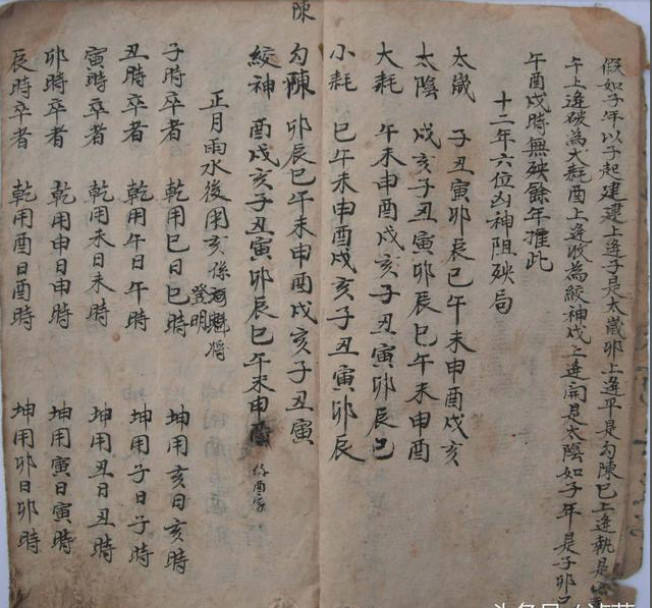 假如子年以子起建建上逢子是太歲卯上逢平是勾陳巳上逢執是小
午上逢破為大耗酉上逢收為絞神戌上逢開是太陰如子年是子卯巳
午酉戌時無殃餘年推此
十二年六位凶神阻殃局
太歲 子丑寅卯辰巳午未申酉戌亥
太陰 戌亥子丑寅卯辰巳午未申酉
大耗 午未申酉戌亥子丑寅卯辰巳
小耗 巳午未申酉戌亥子丑寅卯辰
陳
勾陳 卯辰巳午未申酉戌亥子丑寅
絞神 酉戌亥子丑寅卯辰巳午未申
正月雨水後用亥係
登明
將
子時卒者 乾用巳日巳時 坤用亥日亥時
丑時卒者 乾用午日午時 坤用子日子時
寅時卒者 乾用未日未時 坤用丑日丑時
卯時卒者 乾用申日申時 坤用寅日寅時
辰時卒者 乾用酉日酉時 坤用卯日卯時